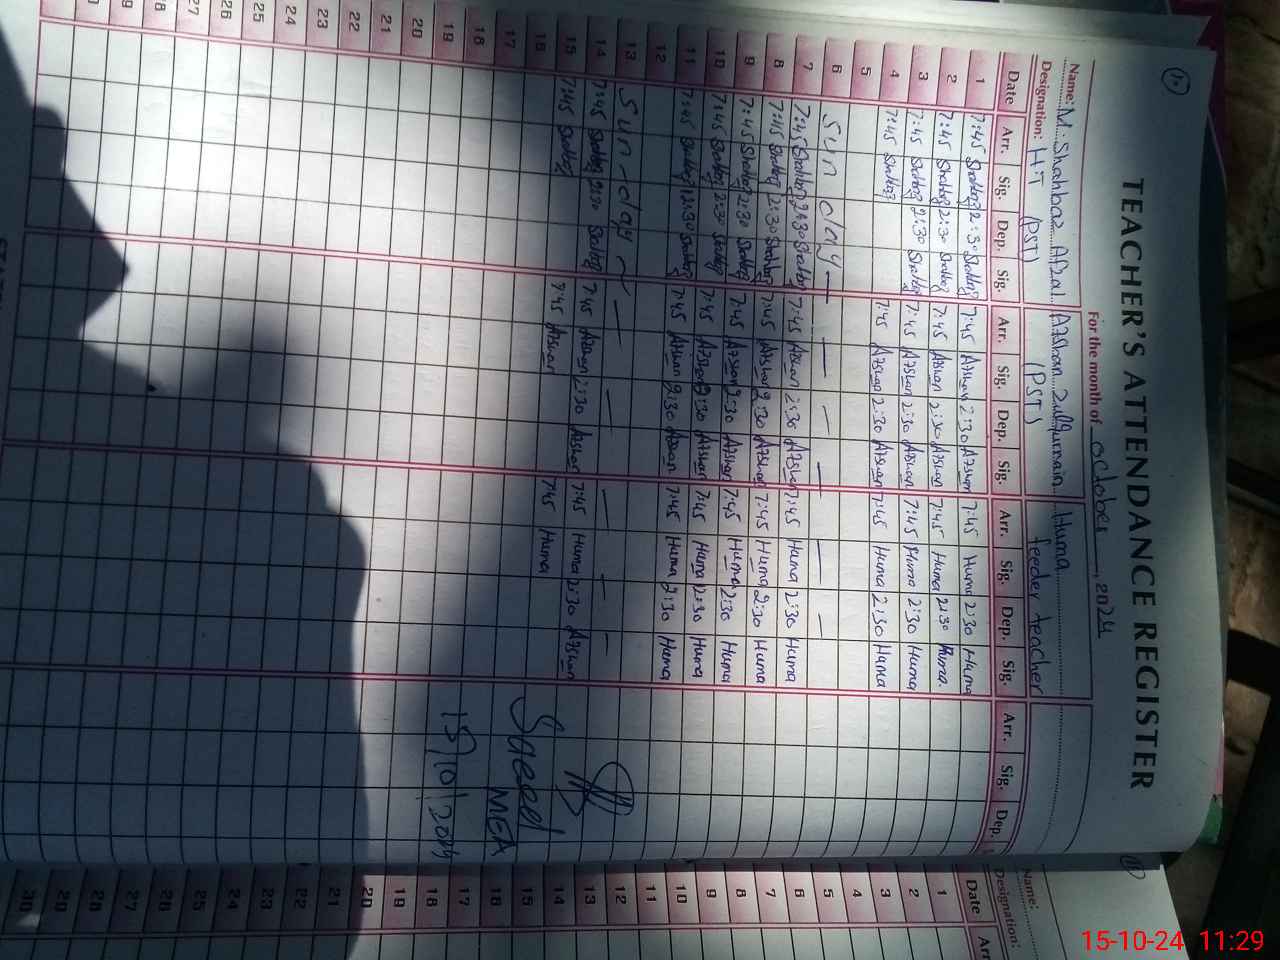 TEACHER'S ATTENDANCE REGISTER
For the month of October, 2024
Name: M. Shahbaz Afzal Afshan Zulfurnain Huma
Designation: H.T (PST) (PST) feeder teacher
Date Arr. Sig. Dep. Sig. Arr. Sig. Dep. Sig. Arr. Sig. Dep. Sig. Arr. Sig. Dep.
1 7:45 Shahbaz 2:30 Shahbaz 7:45 Afshan 2:30 Afshan 7:45 Huma 2:30 Huma
2 7:45 Shahbaz 2:30 Shahbaz 7:45 Afshan 2:30 Afshan 7:45 Huma 2:30 Huma.
3 7:45 Shahbaz 2:30 Shahbaz 7:45 Afshan 2:30 Afshan 7:45 Huma 2:30 Huma
4 7:45 Shahbaz 7:45 Afshan 2:30 Afshan 7:45 Huma 2:30 Huma
5
6 Sun day
7 7:45 Shahbaz 2:30 Shahbaz 7:45 Afshan 2:30 Afshan 7:45 Huma 2:30 Huma
8 7:45 Shahbaz 2:30 Shahbaz 7:45 Afshan 2:30 Afshan 7:45 Huma 2:30 Huma
9 7:45 Shahbaz 2:30 Shahbaz 7:45 Afshan 2:30 Afshan 7:45 Huma 2:30 Huma
10 7:45 Shahbaz 2:30 Shahbaz 7:45 Afshan 2:30 Afshan 7:45 Huma 2:30 Huma
11 7:45 Shahbaz 12:30 Shahbaz 7:45 Afshan 2:30 Afshan 7:45 Huma 2:30 Huma
12
13 Sun-day
14 7:45 Shahbaz 2:30 Shahbaz 7:45 Afshan 2:30 Afshan 7:45 Huma 2:30 Afshan
15 7:45 Shahbaz 7:45 Afshan 7:45 Huma
16
17
18
19
20
21
22
23
24
25
26
27
28
29
Saeed
MEA
15/10/2024
Name:
Designation:
Date Arr
1
2
3
4
5
6
7
8
9
10
11
12
13
14
15
16
17
18
19
20
21
22
23
24
25
26
27
28
29
30
15-10-24 11:29